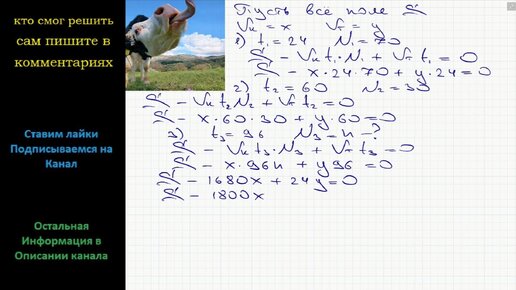 кто смог решить
сам пишите в
комментариях
Ставим лайки
Подписываемся на
Канал
Остальная
Информация в
Описании канала
Пусть всё поле S
Vк = x Vт = y
1) t₁ = 24 N₁ = 70
S - Vк t₁·N₁ + Vт t₁ = 0
S - x·24·70 + y·24 = 0
2) t₂ = 60 N₂ = 30
S - Vк t₂N₂ + Vт t₂ = 0
S - x·60·30 + y·60 = 0
3) t₃ = 96 N₃ = n - ?
S - Vк t₃·N₃ + Vт t₃ = 0
S - x·96n + y96 = 0
S - 1680x + 24y = 0
S - 1800x